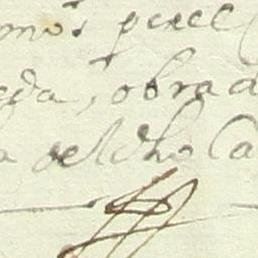 mos perez
eda, obrad
a del dho Ca